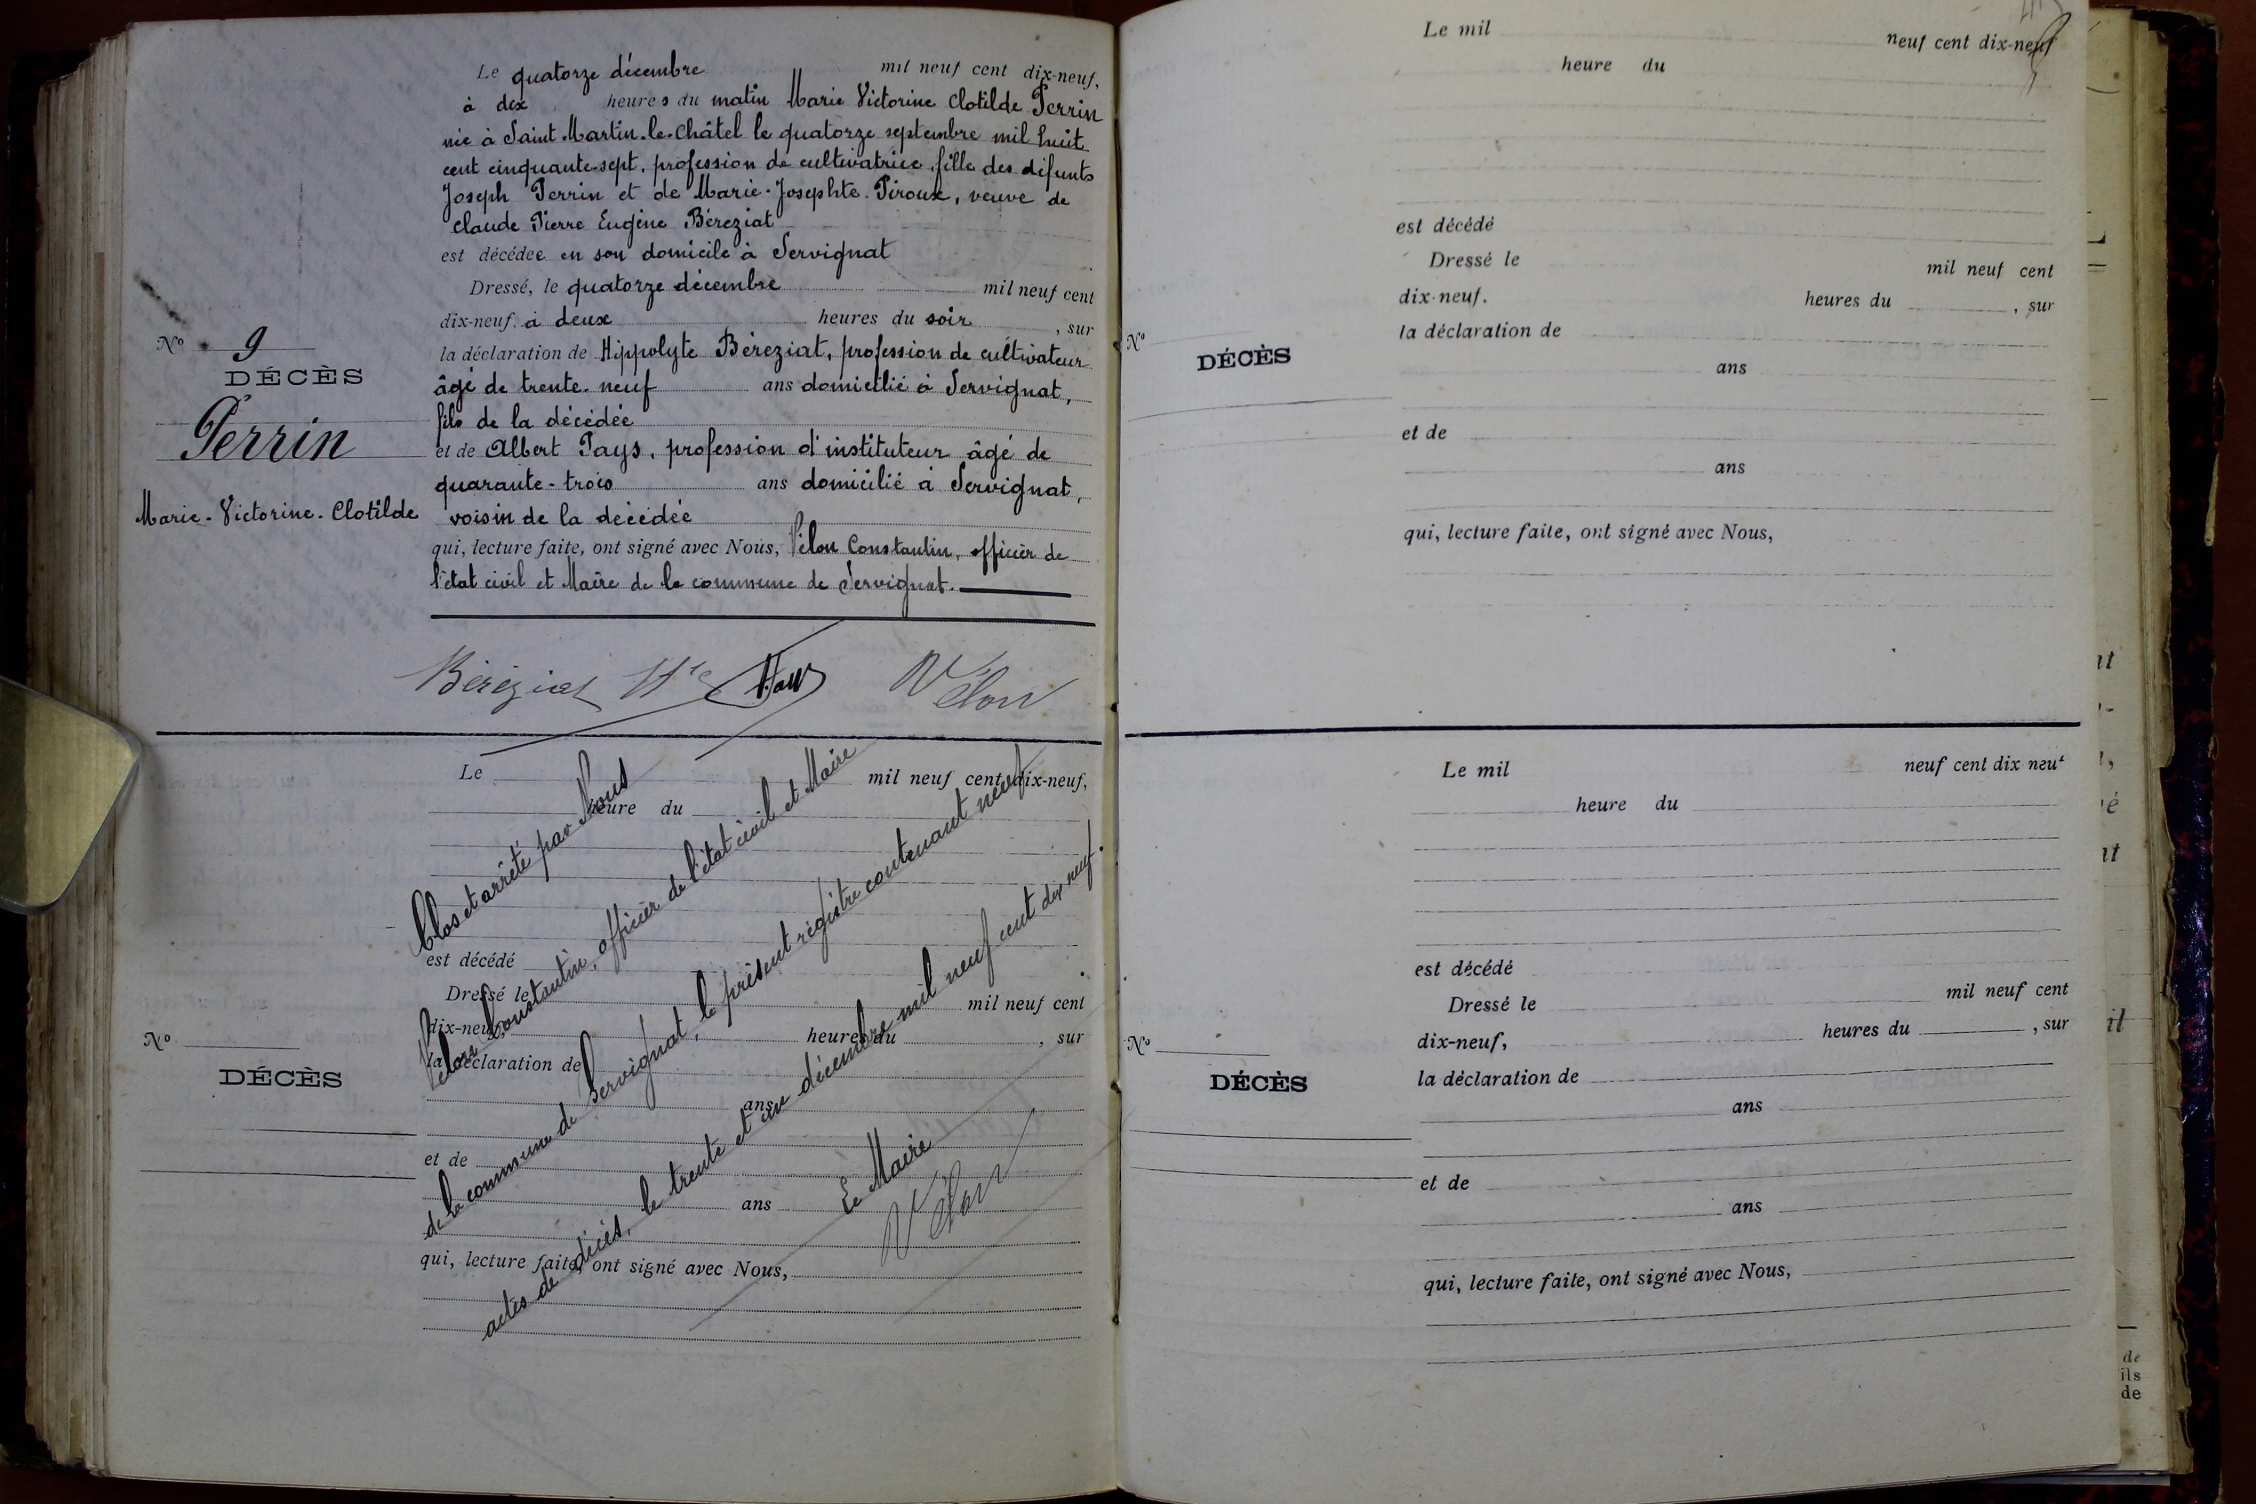 Le quatorze décembre mil neuf cent dix-neuf,
à dix heures du matin Marie Victorine Clotilde Perrin
née à Saint-Martin-le-Châtel le quatorze septembre mil huit
cent cinquante-sept, profession de cultivatrice, fille des défunts
Joseph Perrin et de Marie-Josephte Piroux, veuve de
Claude Pierre Eugène Béréziat
est décédée en son domicile à Servignat
Dressé, le quatorze décembre mil neuf cent
dix-neuf. à deux heures du soir, sur
la déclaration de Hippolyte Béréziat, profession de cultivateur
âgé de trente-neuf ans domicilié à Servignat,
fils de la décédée
et de Albert Pays, profession d'instituteur âgé de
quarante-trois ans domicilié à Servignat,
voisin de la décédée
qui, lecture faite, ont signé avec Nous, Vélon Constantin, officier de
l'état civil et Maire de la commune de Servignat.
Nº 9
DÉCÈS
Perrin
Marie-Victorine-Clotilde
Béréziat Hte Vélon
Le mil neuf cent dix-neuf,
heure du
est décédé
Dressé le mil neuf cent
dix-neuf, heures du , sur
la déclaration de
ans
et de
ans
qui, lecture faite, ont signé avec Nous,
Nº
DÉCÈS
Clos et arrêté par Nous
Vélon Constantin, officier de l'état civil et Maire
de la commune de Servignat, le présent registre contenant neuf
actes de décès, le trente et un décembre mil neuf cent dix neuf.
Le Maire
Vélon
Le mil neuf cent dix-neuf
heure du
est décédé
Dressé le mil neuf cent
dix-neuf. heures du , sur
la déclaration de
ans
et de
ans
qui, lecture faite, ont signé avec Nous,
Nº
DÉCÈS
Le mil neuf cent dix neuf
heure du
est décédé
Dressé le mil neuf cent
dix-neuf, heures du , sur
la déclaration de
ans
et de
ans
qui, lecture faite, ont signé avec Nous,
Nº
DÉCÈS
de
ils
de